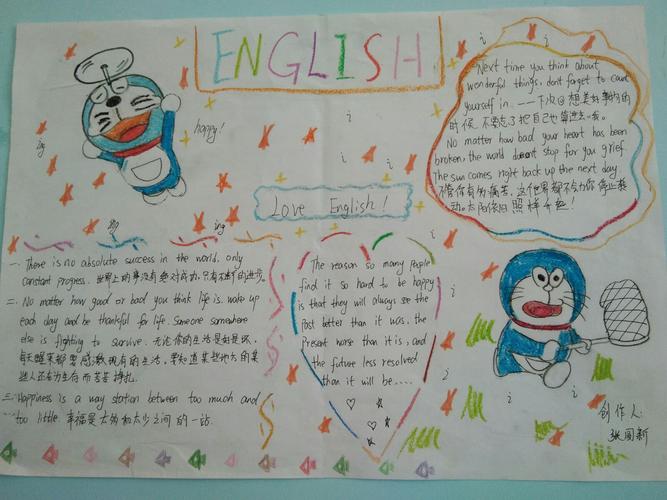 ENGLISH
happy!
ing
ing
ing
i
i
i
i
i
i
Love English!
Next time you think about
wonderful things, don't forget to count
yourself in. ——下次@想美好事物的
时候,不要忘了把自己也算进去哦。
No matter how bad your heart has been
broken, the world doesn't stop for you grief.
The sun comes right back up the next day.
不管你有多痛苦,这个世界都不会为你停止转
动。太阳依旧照样升起!
一. There is no absolute success in the world, only
constant progress. 世界上的事没有绝对成功,只有不断的进步。
二. No matter how good or bad you think life is, wake up
each day and be thankful for life. Someone somewhere
else is fighting to survive. 无论你的生活是好是坏,
每天醒来都要感激现有的生活,要知道某些地方的某
些人还在为生存而苦苦挣扎。
三. Happiness is a way station between too much and
too little. 幸福是太多和太少之间的一站.
The reason so many people
find it so hard to be happy
is that they will always see the
past better than it was, the
Present worse than it is, and
the future less resolved
than it will be.....
创作人:
张国新